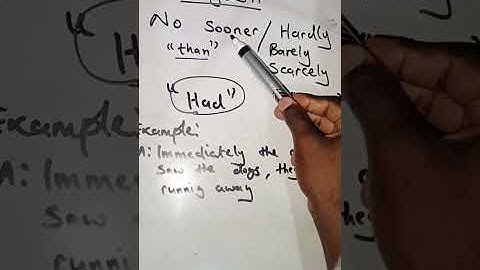 No Sooner / Hardly
"than" Barely
Scarcely
"Had"
Example:
Immediately the
saw the dogs,
runnig away